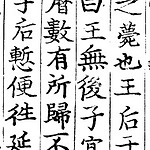 之薨也王后
曰王無後子宜
曆數有所歸不
子后慙便徃延